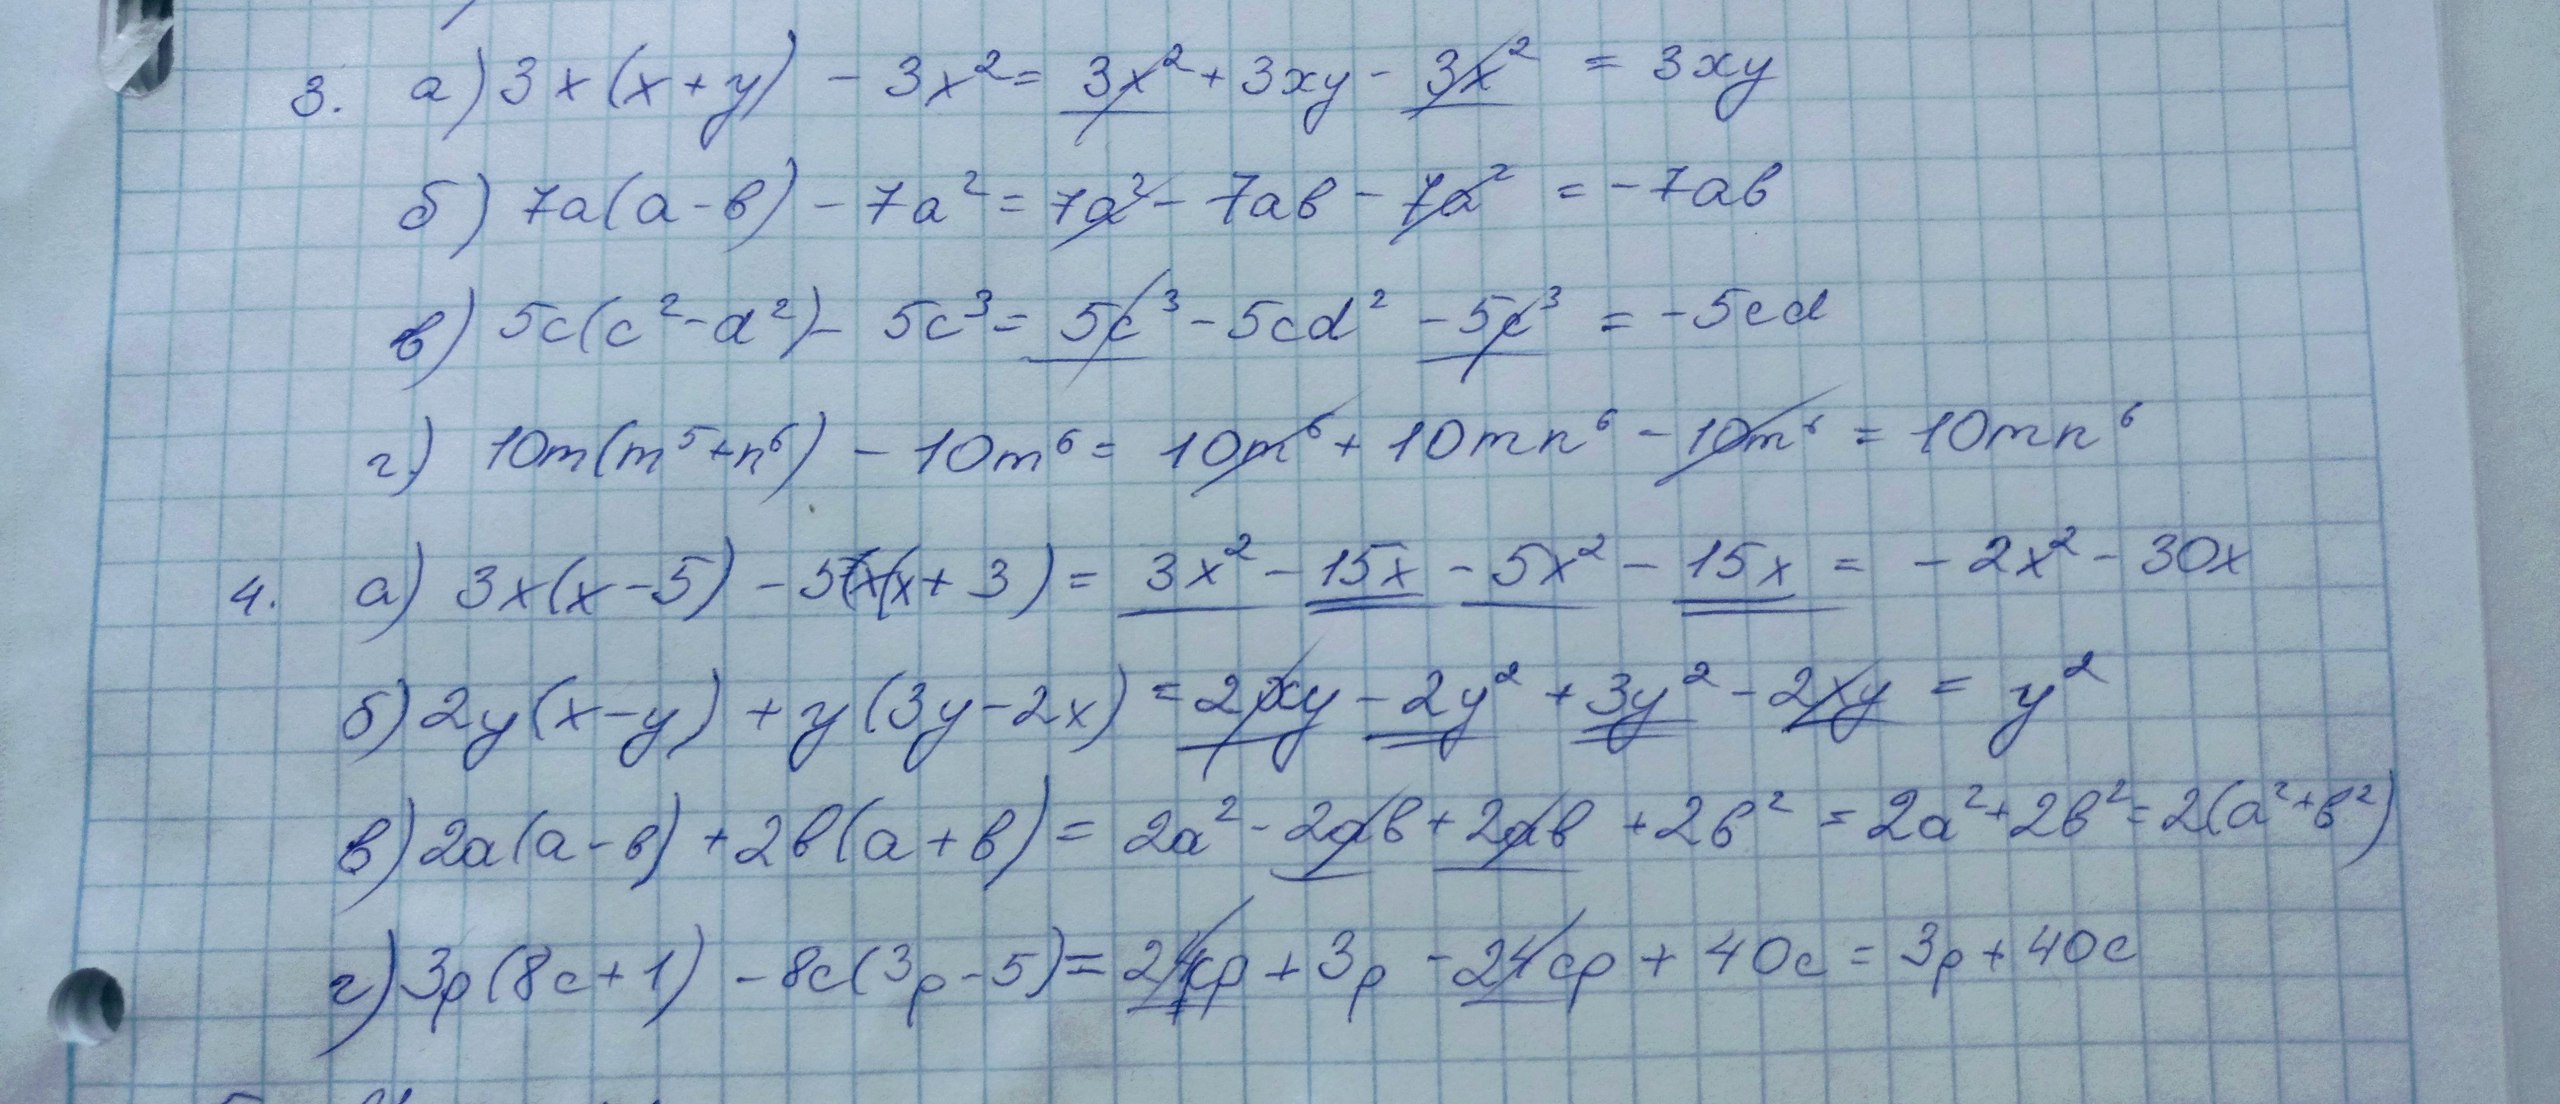 3. а) 3x(x+y) - 3x² = 3x² + 3xy - 3x² = 3xy
б) 7a(a-b) - 7a² = 7a² - 7ab - 7a² = -7ab
в) 5c(c²-d²) - 5c³ = 5c³ - 5cd² - 5c³ = -5cd
г) 10m(m⁵+n⁶) - 10m⁶ = 10m⁶ + 10mn⁶ - 10m⁶ = 10mn⁶
4. а) 3x(x-5) - 5x(x+3) = 3x² - 15x - 5x² - 15x = -2x² - 30x
б) 2y(x-y) + y(3y-2x) = 2xy - 2y² + 3y² - 2xy = y²
в) 2a(a-b) + 2b(a+b) = 2a² - 2ab + 2ab + 2b² = 2a² + 2b² = 2(a²+b²)
г) 3p(8c+1) - 8c(3p-5) = 24cp + 3p - 24cp + 40c = 3p + 40c